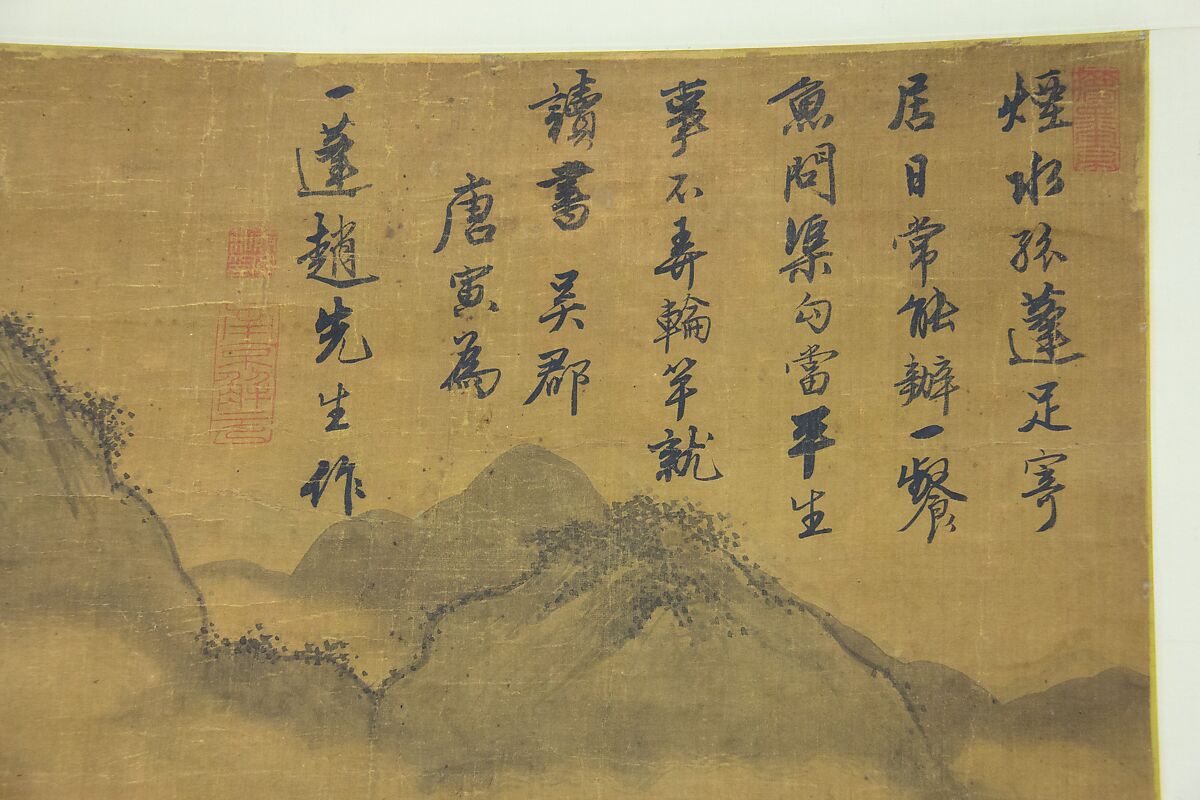 煙水孤蓬足寄
居日常能辦一餐
魚問渠勾當平生
事不弄輪竿就
讀書 吴郡
唐寅為
一蓬趙先生作
南京解元